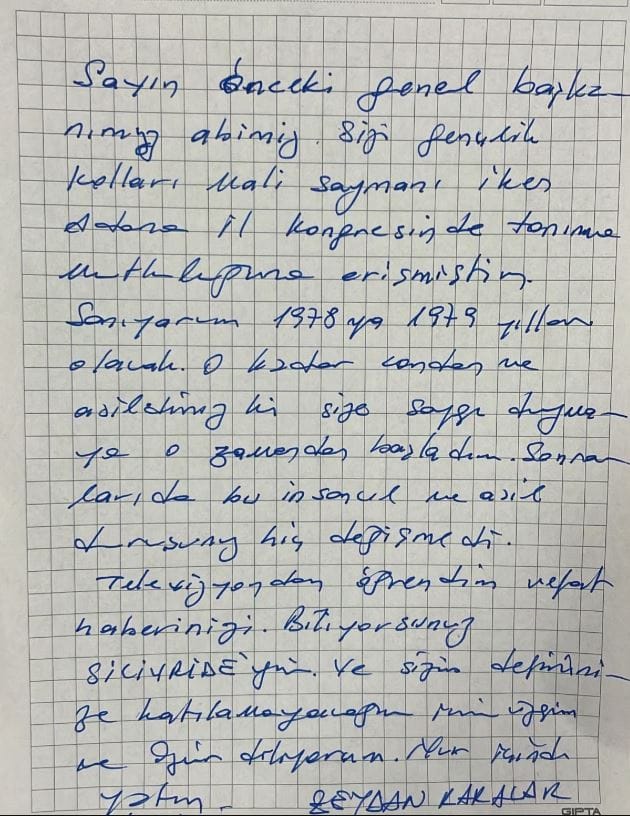 Sayın önceki genel başka-
nımız abimiz. Sizi gençlik
kolları Mali saymanı iken
Adana il kongresinde tanıma
mutluluğuna erişmiştim.
Sanıyorum 1978 ya 1979 yılları
olacak. O kadar candan ve
asildiniz ki size saygı duyma-
ya o zamandan başladım. Sonra-
ları da bu insancıl ve asil
duruşunuz hiç değişmedi.
Televizyondan öğrendim vefat
haberinizi. Biliyorsunuz
SİLİVRİDE'yim. Ve sizin defnini-
ze katılamayacağım için üzgün
ve özür diliyorum. Nur içinde
yatın.
ZEYDAN KARALAR
GIPTA